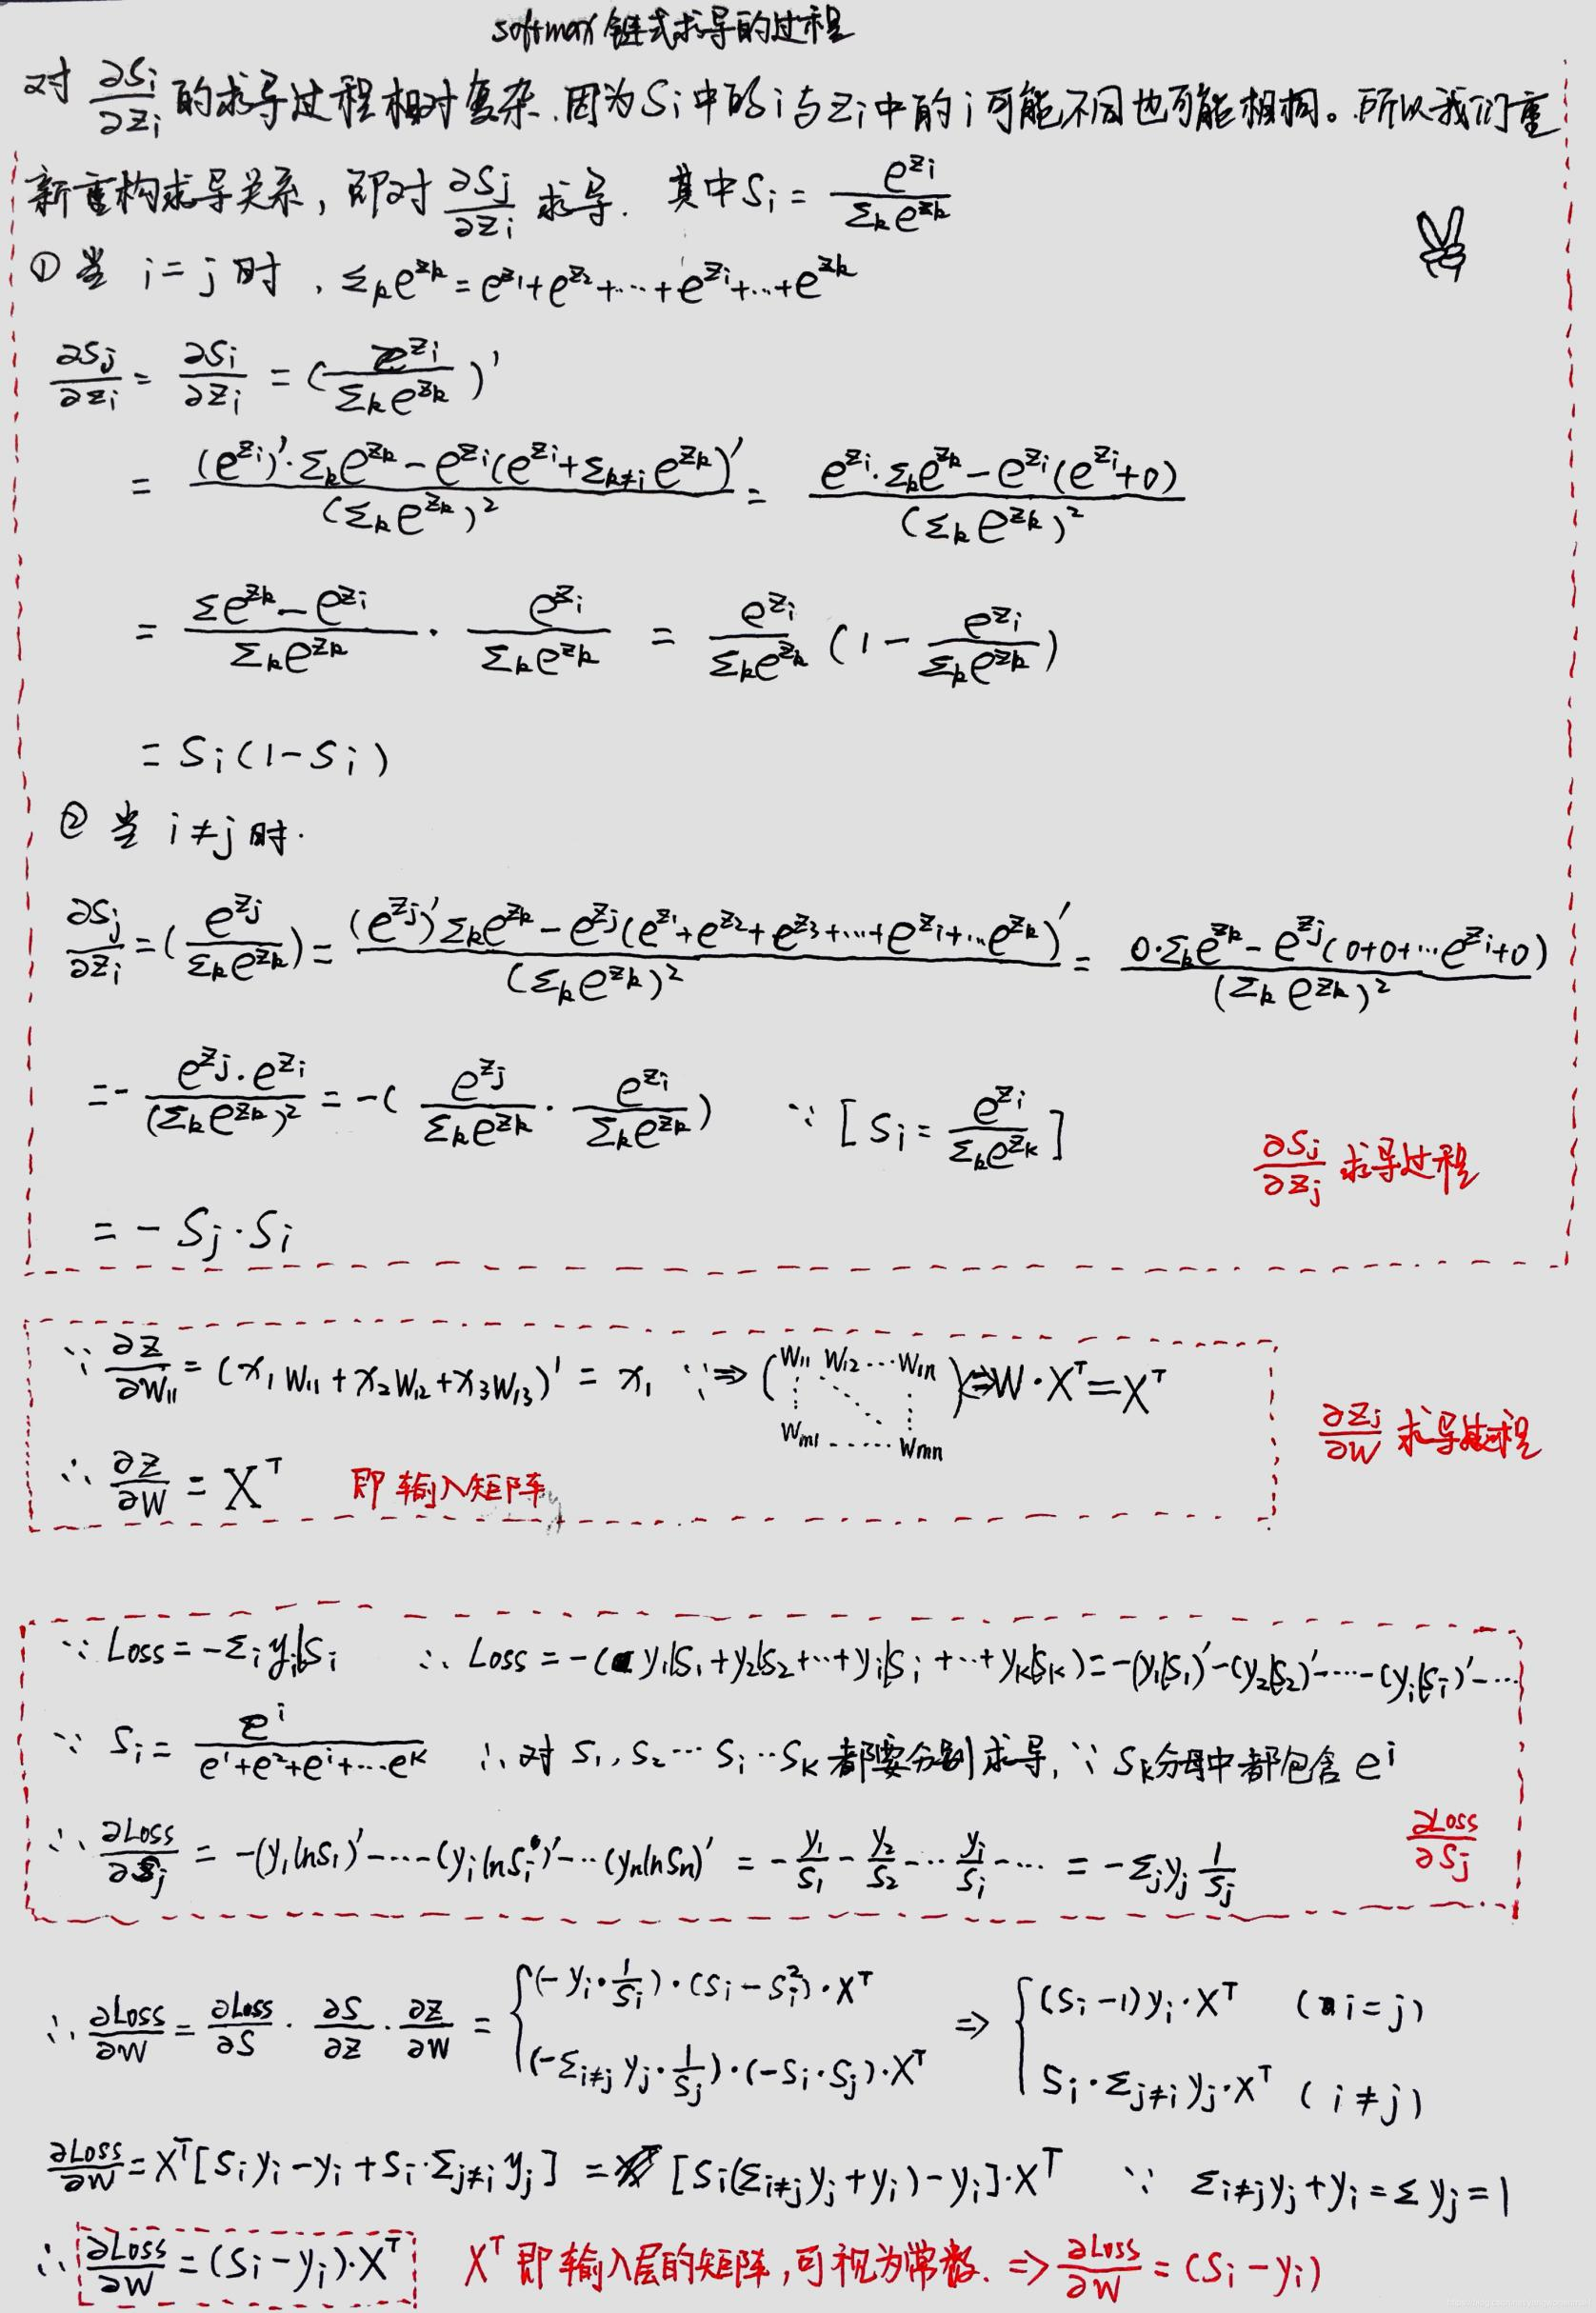 softmax链式求导的过程
对 ∂Si/∂Zi 的求导过程相对复杂.因为Si中的i与Zi中的i可能不同也可能相同。所以我们重
新重构求导关系,即对 ∂Sj/∂Zi 求导. 其中Si = e^Zi/Σk e^Zk
① 当 i=j 时, Σk e^Zk = e^Z1+e^Z2+···+e^Zi+···+e^Zk
∂Sj/∂Zi = ∂Si/∂Zi = (e^Zi/Σk e^Zk)'
= ((e^Zi)'·Σk e^Zk − e^Zi(e^Zi+Σk≠i e^Zk)')/(Σk e^Zk)² = (e^Zi·Σk e^Zk − e^Zi(e^Zi+0))/(Σk e^Zk)²
= (Σe^Zk − e^Zi)/(Σk e^Zk) · e^Zi/(Σk e^Zk) = e^Zi/(Σk e^Zk) (1 − e^Zi/(Σk e^Zk))
= Si(1−Si)
② 当 i≠j 时.
∂Sj/∂Zi = (e^Zj/Σk e^Zk) = ((e^Zj)'Σk e^Zk − e^Zj(e^Z1+e^Z2+e^Z3+···+e^Zi+···e^Zk)')/(Σk e^Zk)² = (0·Σk e^Zk − e^Zj(0+0+···e^Zi+0))/(Σk e^Zk)²
= − (e^Zj·e^Zi)/(Σk e^Zk)² = −( e^Zj/(Σk e^Zk) · e^Zi/(Σk e^Zk) ) ∵ [Si = e^Zi/(Σk e^Zk)]
∂Sj/∂Zj 求导过程
= − Sj·Si
∵ ∂Z/∂W11 = (x1W11+x2W12+x3W13)' = x1 ∵⇒ (W11 W12···W1n
Wm1 ······ Wmn) ⇔ W·X^T = X^T
∂Zj/∂W 求导过程
∴ ∂Z/∂W = X^T 即输入矩阵
∵ Loss = −Σi yi|Si ∴ Loss = −(y1|S1+y2|S2+···+yi|Si+···+yK|SK) = −(y1|S1)'−(y2|S2)'−····−(yi|Si)'−···
∵ Si = e^i/(e^1+e^2+e^i+···e^K) ∴ 对 S1,S2···Si··SK 都要分别求导, ∵ Sk分母中都包含 e^i
∴ ∂Loss/∂Sj = −(y1lnS1)'−···−(yilnSi)'−··(ynlnSn)' = −y1/S1 − y2/S2 −·· yi/Si −··· = −Σj yj 1/Sj
∂Loss/∂Sj
∴ ∂Loss/∂W = ∂Loss/∂S · ∂S/∂Z · ∂Z/∂W = { (−yi·1/Si)·(Si−Si²)·X^T ⇒ { (Si−1)yi·X^T (i=j)
(−Σi≠j yj·1/Sj)·(−Si·Sj)·X^T Si·Σj≠i yj·X^T (i≠j)
∂Loss/∂W = X^T[Siyi−yi+Si·Σj≠i yj] = [Si(Σi≠j yj+yi)−yi]·X^T ∵ Σi≠j yj+yi = Σyj = 1
∴ ∂Loss/∂W = (Si−yi)·X^T X^T 即输入层的矩阵,可视为常数. ⇒ ∂Loss/∂W = (Si−yi)